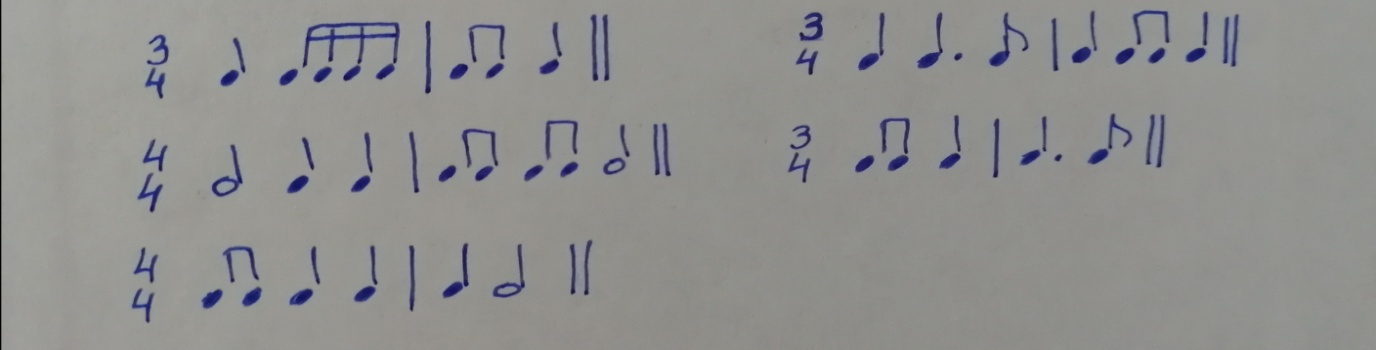 3/4 ♩ ♬♬ | ♫ ♩ ||
3/4 ♩ ♩. ♪ | ♩ ♫ ♩ ||
4/4 𝅗𝅥 ♩ ♩ | ♫ ♫ 𝅗𝅥 ||
3/4 ♫ ♩ | ♩. ♪ ||
4/4 ♫ ♩ ♩ | ♩ 𝅗𝅥 ||